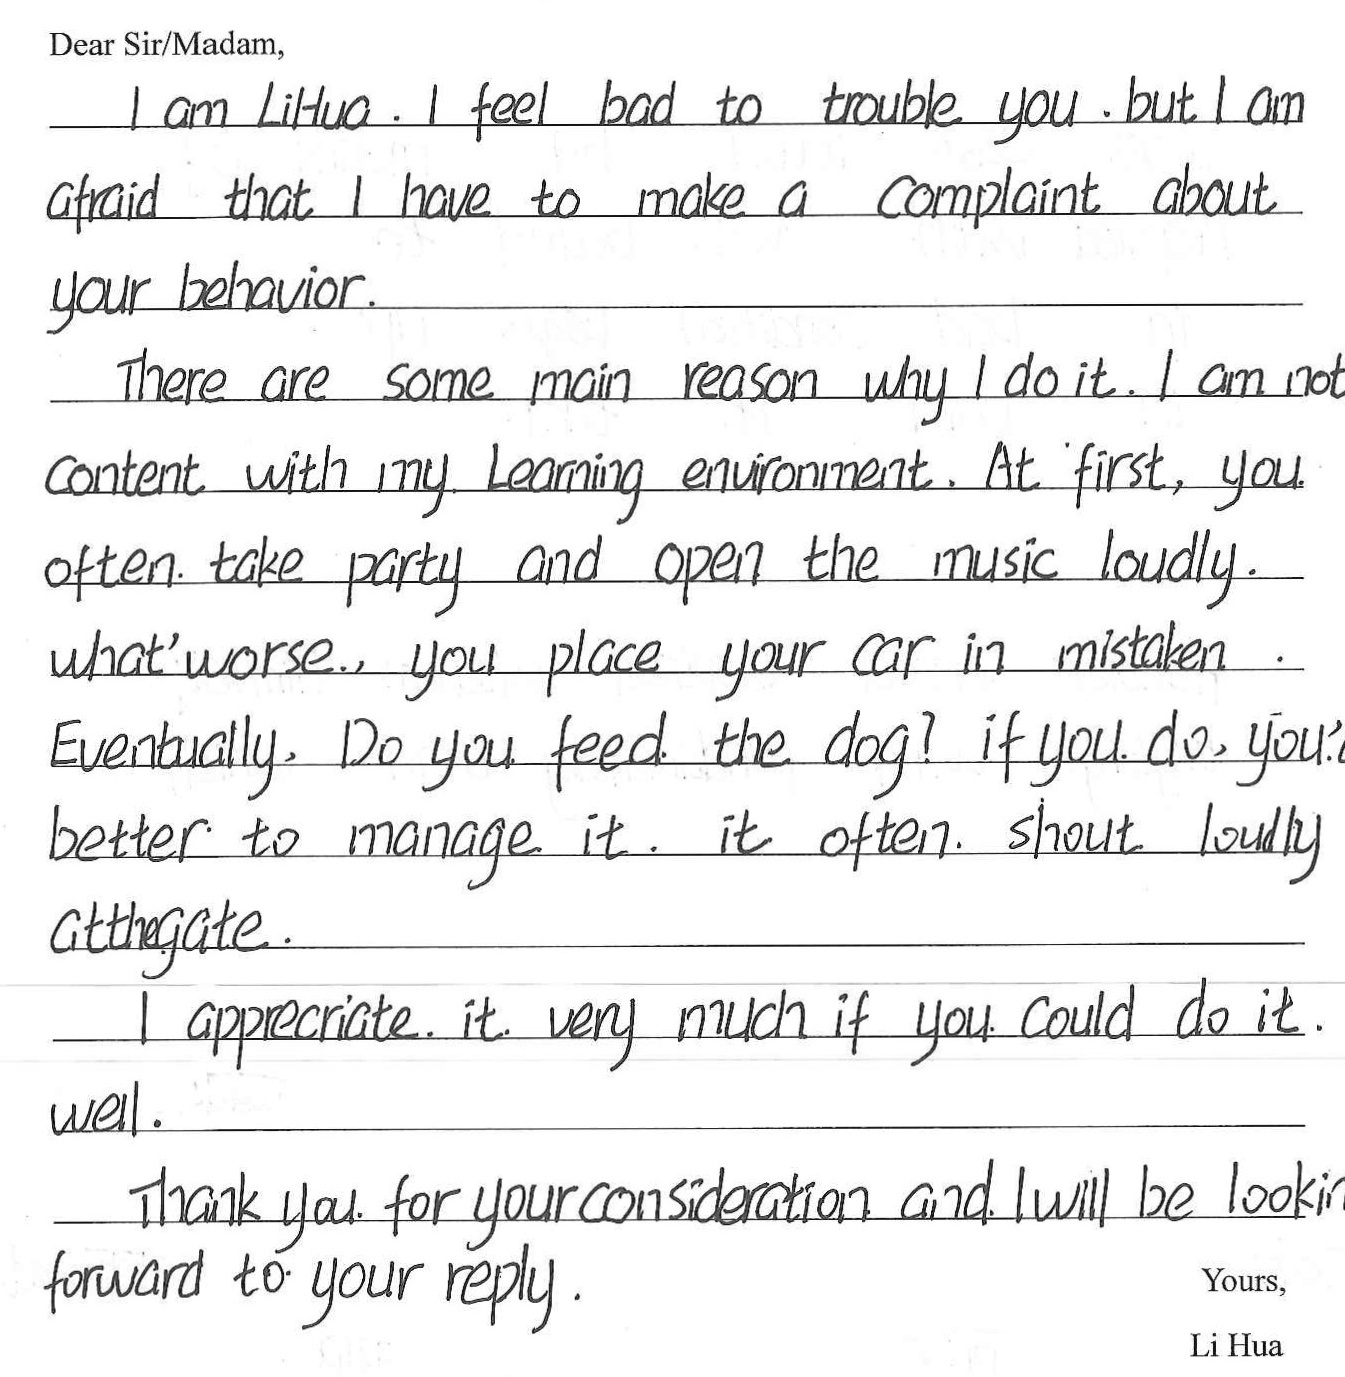 Dear Sir/Madam,
I am LiHua. I feel bad to trouble you. but I am
afraid that I have to make a complaint about
your behavior.
There are some main reason why I do it. I am not
content with my Learning environment. At first, you
often. take party and open the music loudly.
what'worse., you place your car in mistaken.
Eventually, Do you feed the dog? if you do, you'
better to manage it. it often. shout loudly
atthegate.
I apprecriate. it. very much if you could do it.
well.
Thank you for your consideration and I will be lookin
forward to your reply.
Yours,
Li Hua